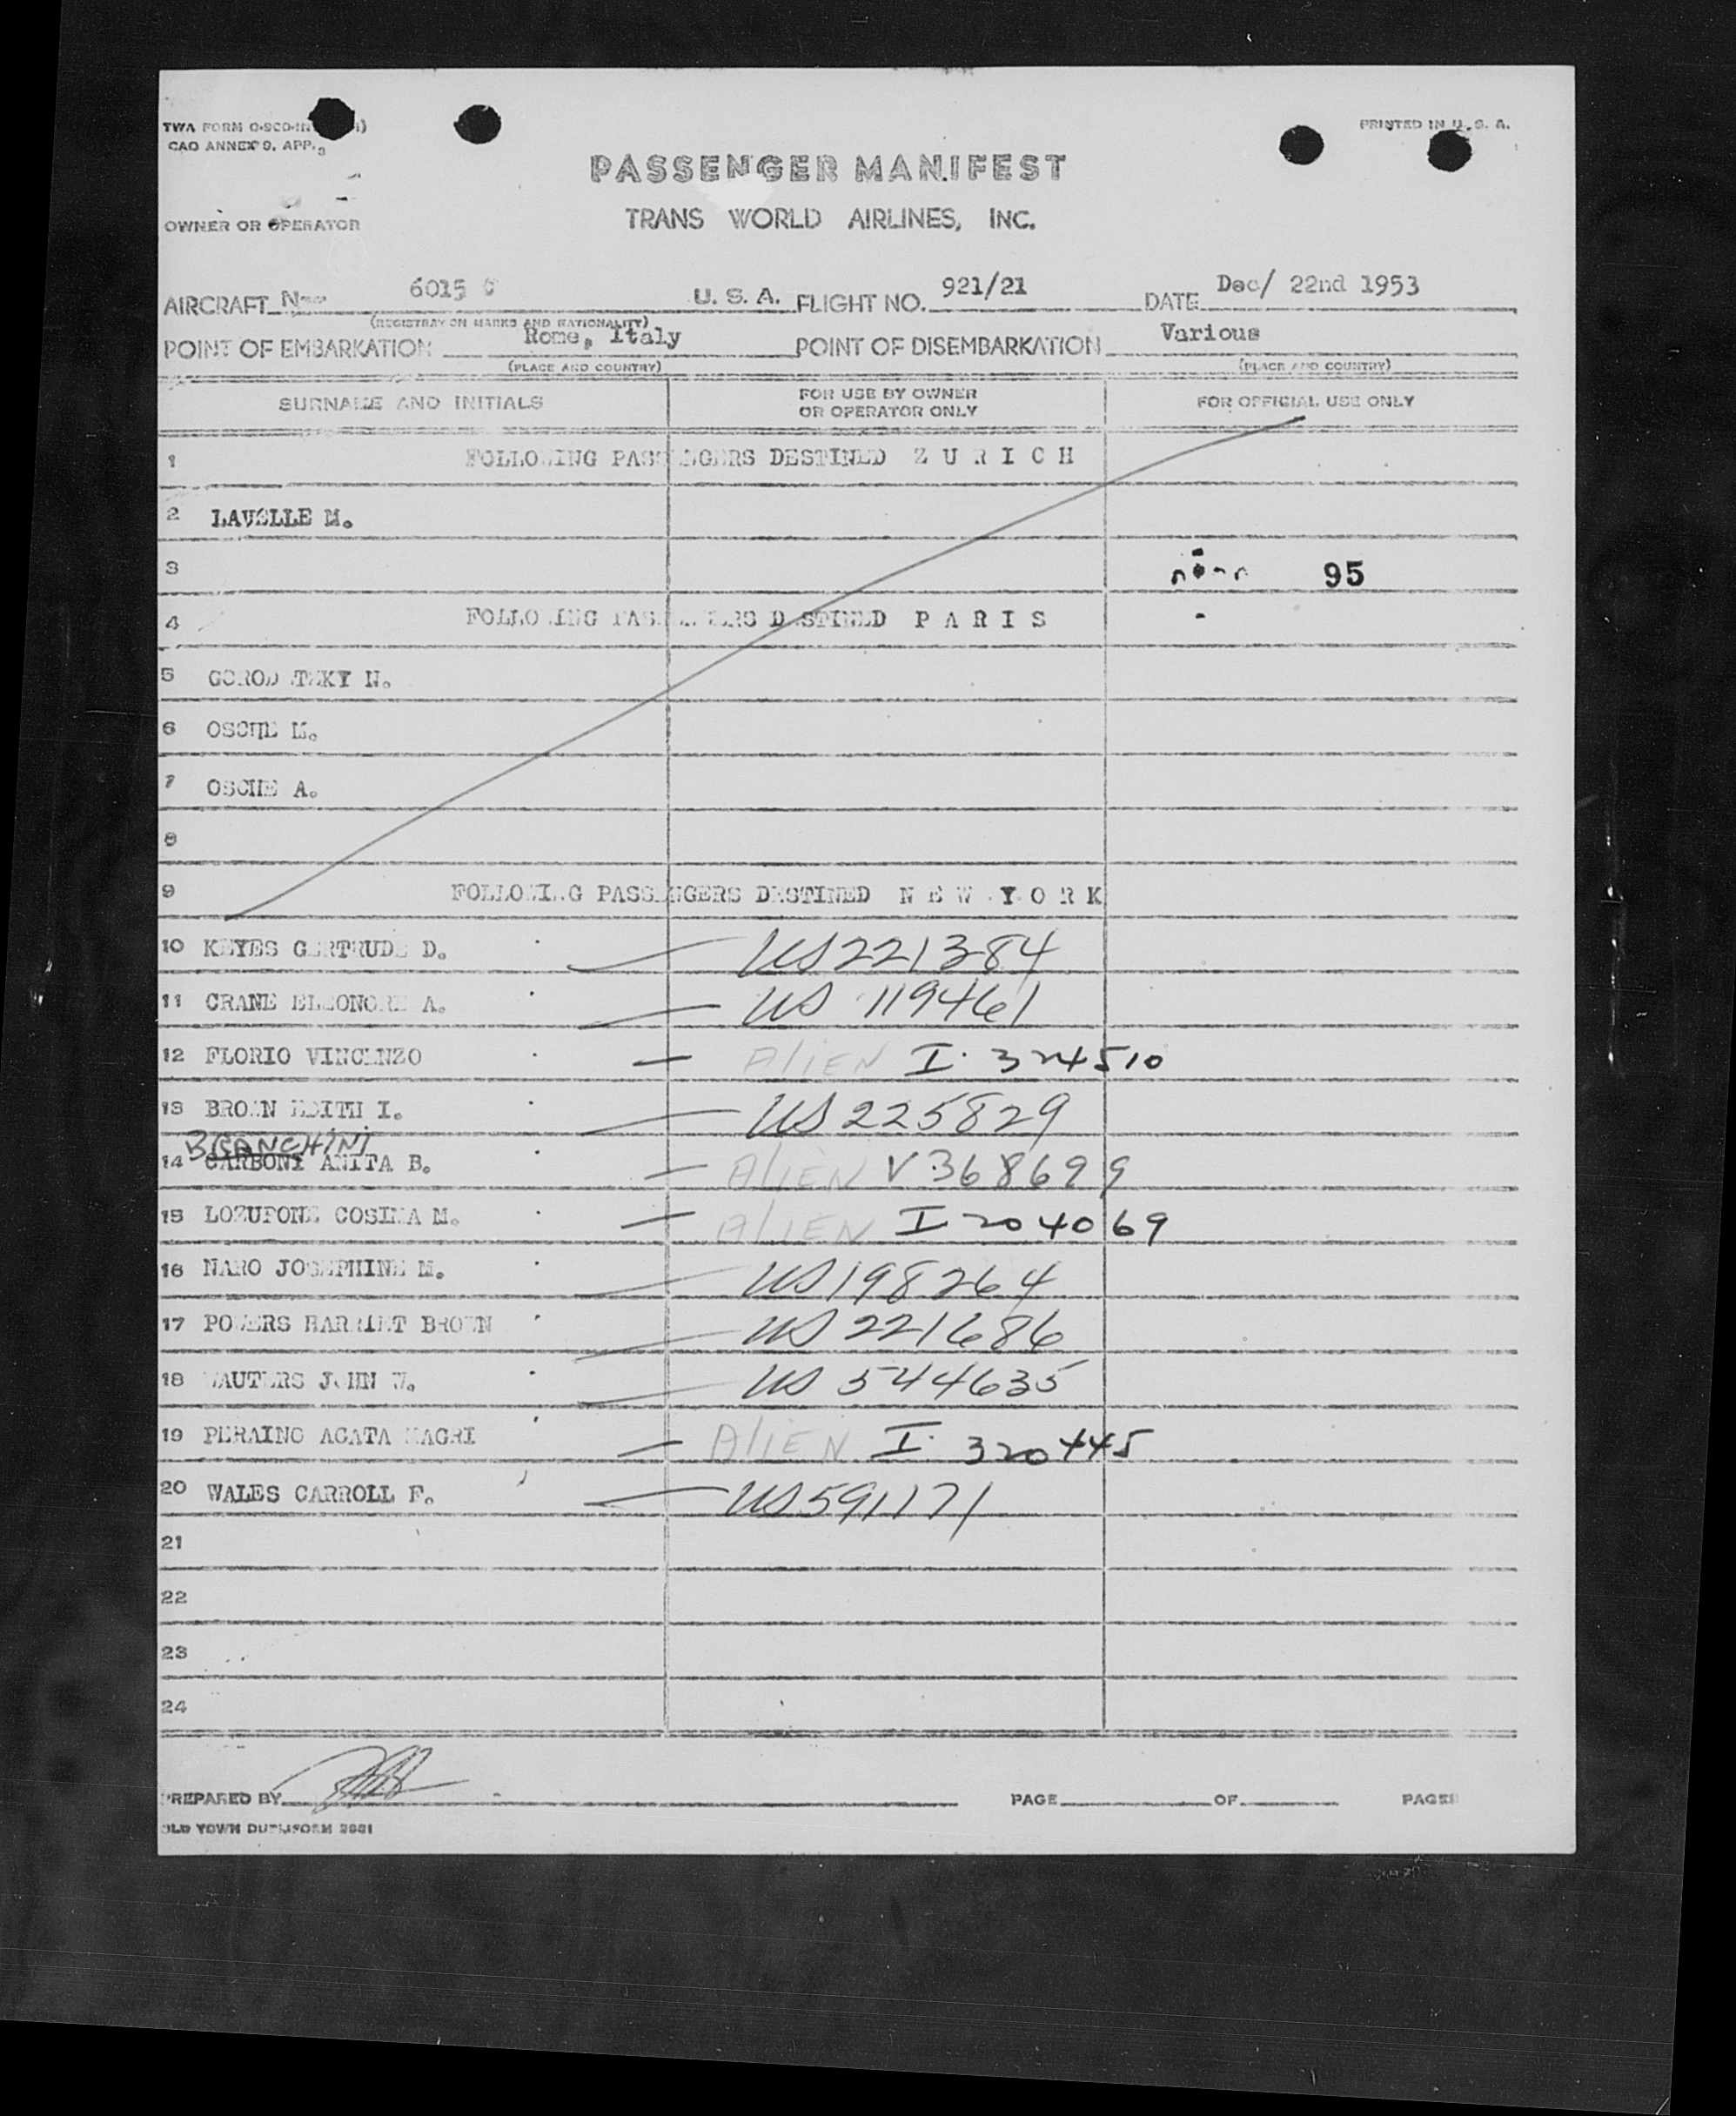 TWA FORM O-SCD-IN
CAO ANNEX 9, APP. 3
PRINTED IN U. S. A.
PASSENGER MANIFEST
OWNER OR OPERATOR TRANS WORLD AIRLINES, INC.
AIRCRAFT N 6015 C U. S. A. FLIGHT NO. 921/21 DATE Dec/ 22nd 1953
(REGISTRATION MARKS AND NATIONALITY)
POINT OF EMBARKATION Rome, Italy POINT OF DISEMBARKATION Various
(PLACE AND COUNTRY) (PLACE AND COUNTRY)
SURNAME AND INITIALS FOR USE BY OWNER OR OPERATOR ONLY FOR OFFICIAL USE ONLY
1 FOLLOWING PASSENGERS DESTINED Z U R I C H
2 LAVELLE M.
3 95
4 FOLLOWING PASSENGERS DESTINED P A R I S
5 GORODETZKY N.
6 OSCHE M.
7 OSCHE A.
8
9 FOLLOWING PASSENGERS DESTINED N E W Y O R K
10 KEYES GERTRUDE D. US 221384
11 CRANE ELEONORE A. US 119461
12 FLORIO VINCENZO ALIEN I. 324510
13 BROWN EDITH I. US 225829
BRANCHINI
14 CARBONI ANITA B. ALIEN V 368699
15 LOZUPONE COSIMA M. ALIEN I 204069
16 NARO JOSEPHINE M. US 198264
17 POWERS HARRIET BROWN US 221686
18 WAUTERS JOHN W. US 544635
19 PERAINO AGATA MAGRI ALIEN I. 320445
20 WALES CARROLL F. US 591171
21
22
23
24
PREPARED BY PAGE OF PAGES
OLD TOWN DUPLIFORM